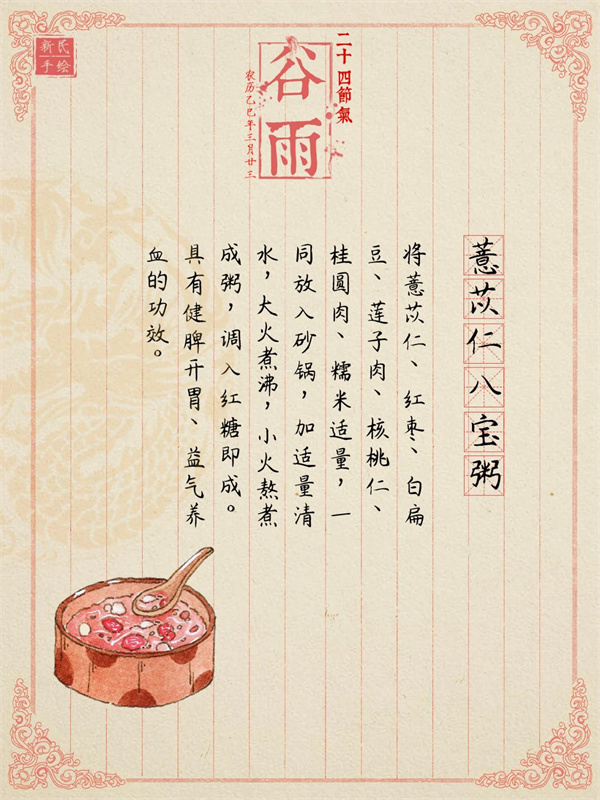 二十四節氣
谷雨
农历乙巳年三月廿三
新民
手绘
薏苡仁八宝粥
将薏苡仁、红枣、白扁
豆、莲子肉、核桃仁、
桂圆肉、糯米适量，一
同放入砂锅，加适量清
水，大火煮沸，小火熬煮
成粥，调入红糖即成。
具有健脾开胃、益气养
血的功效。